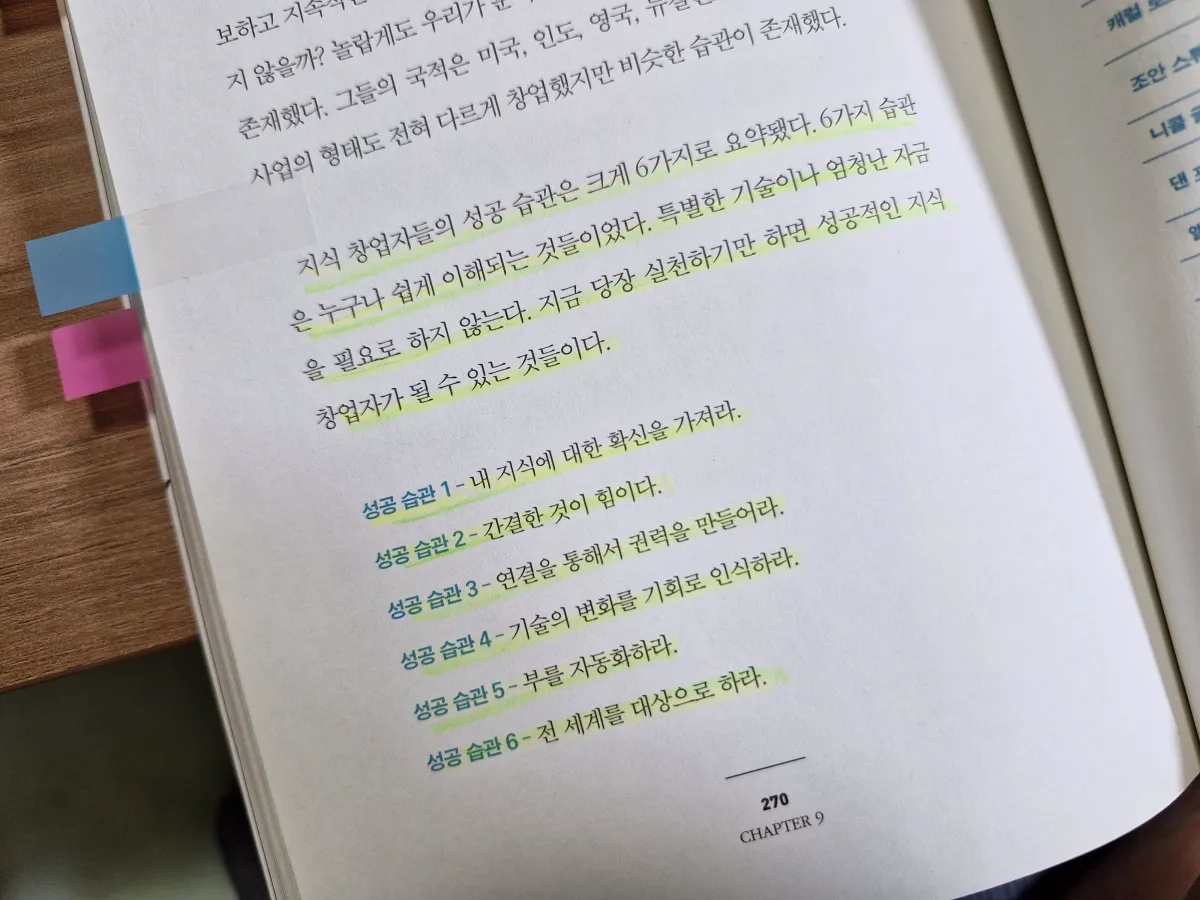 보하고 지속적인
지 않을까? 놀랍게도 우리가
존재했다. 그들의 국적은 미국, 인도, 영국,
사업의 형태도 전혀 다르게 창업했지만 비슷한 습관이 존재했다.
지식 창업자들의 성공 습관은 크게 6가지로 요약됐다. 6가지 습관
은 누구나 쉽게 이해되는 것들이었다. 특별한 기술이나 엄청난 자금
을 필요로 하지 않는다. 지금 당장 실천하기만 하면 성공적인 지식
창업자가 될 수 있는 것들이다.
성공 습관 1 - 내 지식에 대한 확신을 가져라.
성공 습관 2 - 간결한 것이 힘이다.
성공 습관 3 - 연결을 통해서 권력을 만들어라.
성공 습관 4 - 기술의 변화를 기회로 인식하라.
성공 습관 5 - 부를 자동화하라.
성공 습관 6 - 전 세계를 대상으로 하라.
270
CHAPTER 9
캐럴
조안
니콜
댄